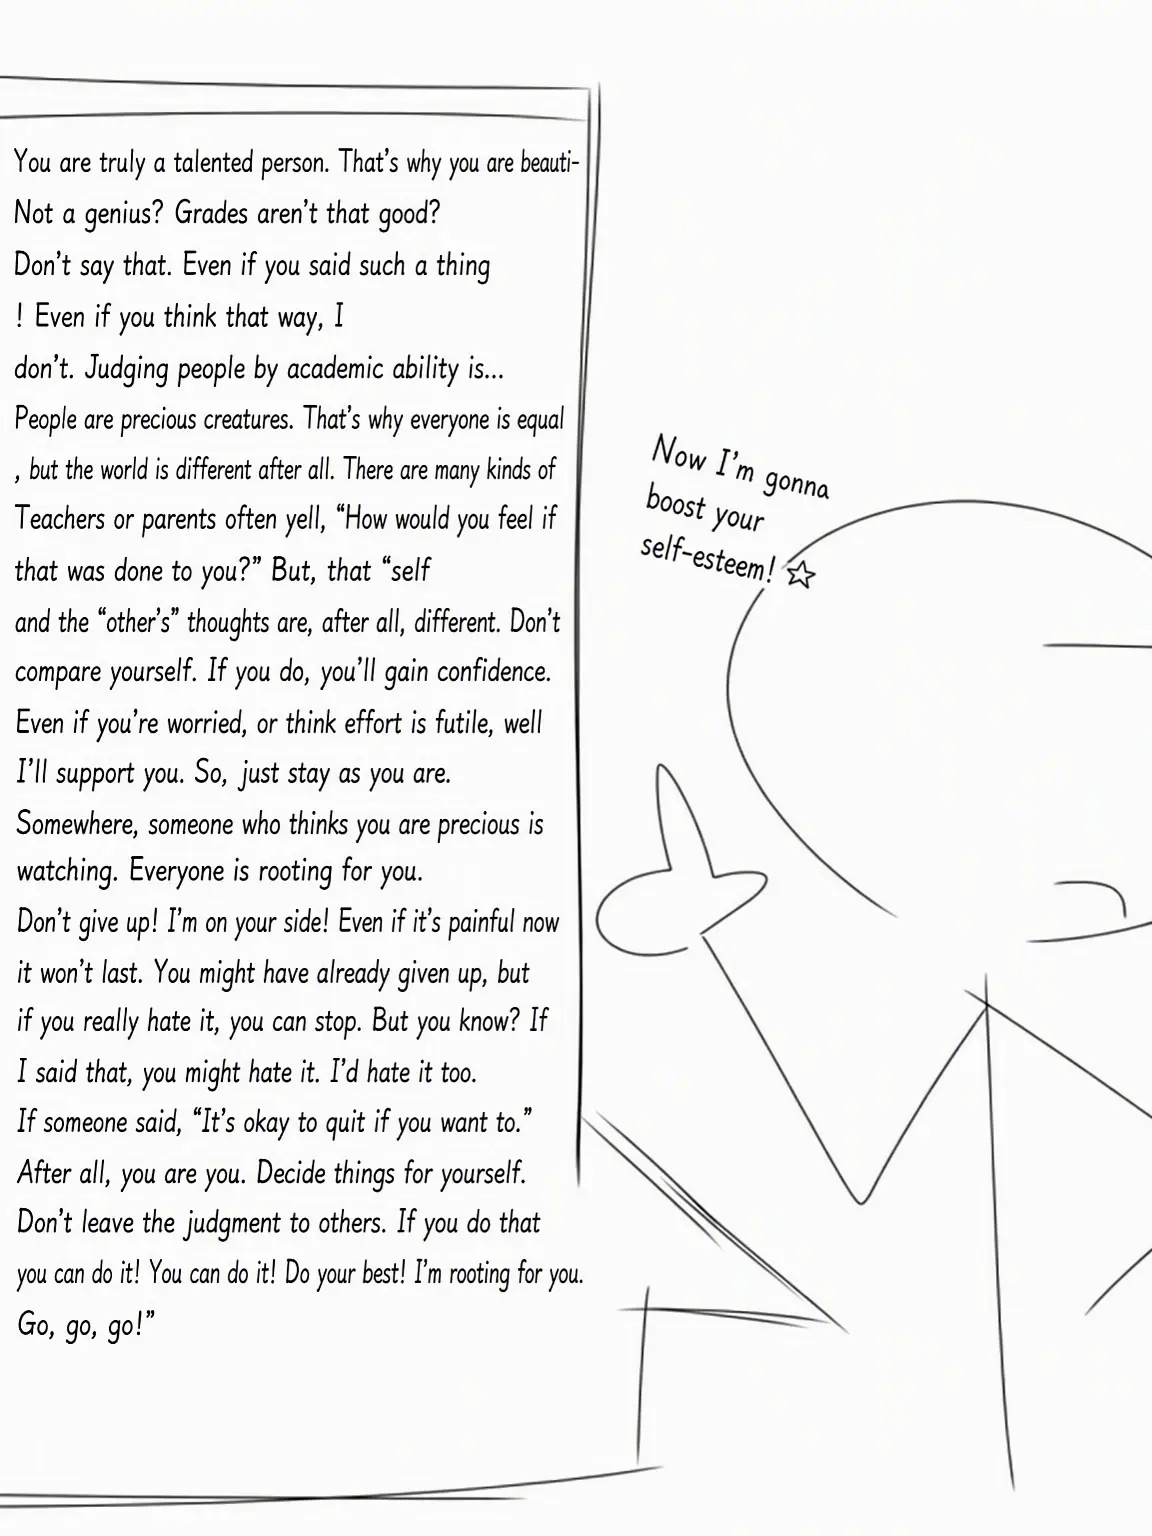 You are truly a talented person. That's why you are beauti-
Not a genius? Grades aren't that good?
Don't say that. Even if you said such a thing
! Even if you think that way, I
don't. Judging people by academic ability is...
People are precious creatures. That's why everyone is equal
, but the world is different after all. There are many kinds of
Teachers or parents often yell, “How would you feel if
that was done to you?” But, that “self
and the “other's” thoughts are, after all, different. Don't
compare yourself. If you do, you'll gain confidence.
Even if you're worried, or think effort is futile, well
I'll support you. So, just stay as you are.
Somewhere, someone who thinks you are precious is
watching. Everyone is rooting for you.
Don't give up! I'm on your side! Even if it's painful now
it won't last. You might have already given up, but
if you really hate it, you can stop. But you know? If
I said that, you might hate it. I'd hate it too.
If someone said, “It's okay to quit if you want to.”
After all, you are you. Decide things for yourself.
Don't leave the judgment to others. If you do that
you can do it! You can do it! Do your best! I'm rooting for you.
Go, go, go!”
Now I'm gonna
boost your
self-esteem! ☆